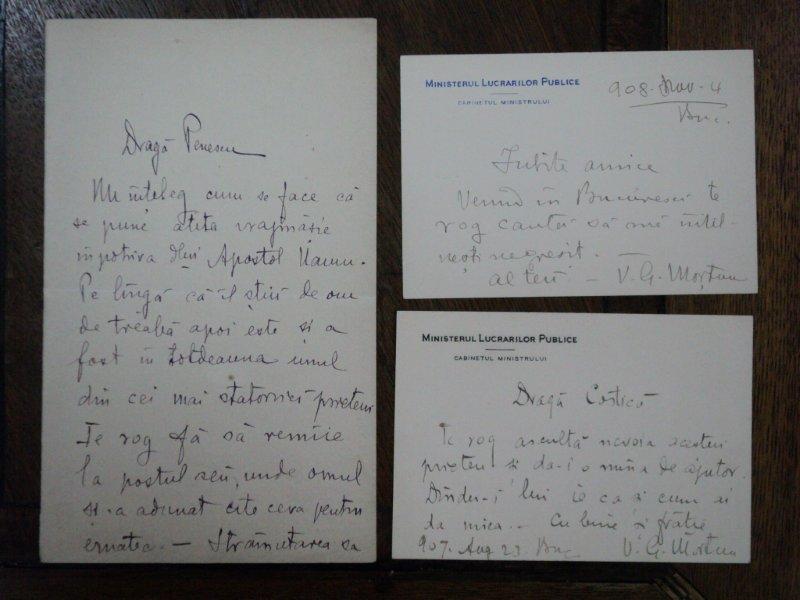 Dragă Penescu
Nu înteleg cum se face că
se pune atita vrajmăsie
inpotriva dlui Apostol
Pe lîngă că îl stiu de om
de treabă apoi este si a
fost in totdeauna unul
din cei mai statornici prieteni
Te rog fă să remiie
la postul seu, unde omul
si-a adunat cite ceva pentru
ernatea. — Strămutarea sa
MINISTERUL LUCRARILOR PUBLICE
CABINETUL MINISTRULUI
908. Nov. 4
Buc.
Iubite amice
Venind in Bucuresci te
rog cautã să mă intel-
nesti negresit.
al teu — V. G. Morțun
MINISTERUL LUCRARILOR PUBLICE
CABINETUL MINISTRULUI
Dragă Costică
Te rog ascultă nevoia acestui
prieten si da-i o mîna de ajutor.
Dîndu-i lui ie ca si cum ai
da mica. — Cu bine si frătie
907. Aug 23. Buc V. G. Morțun